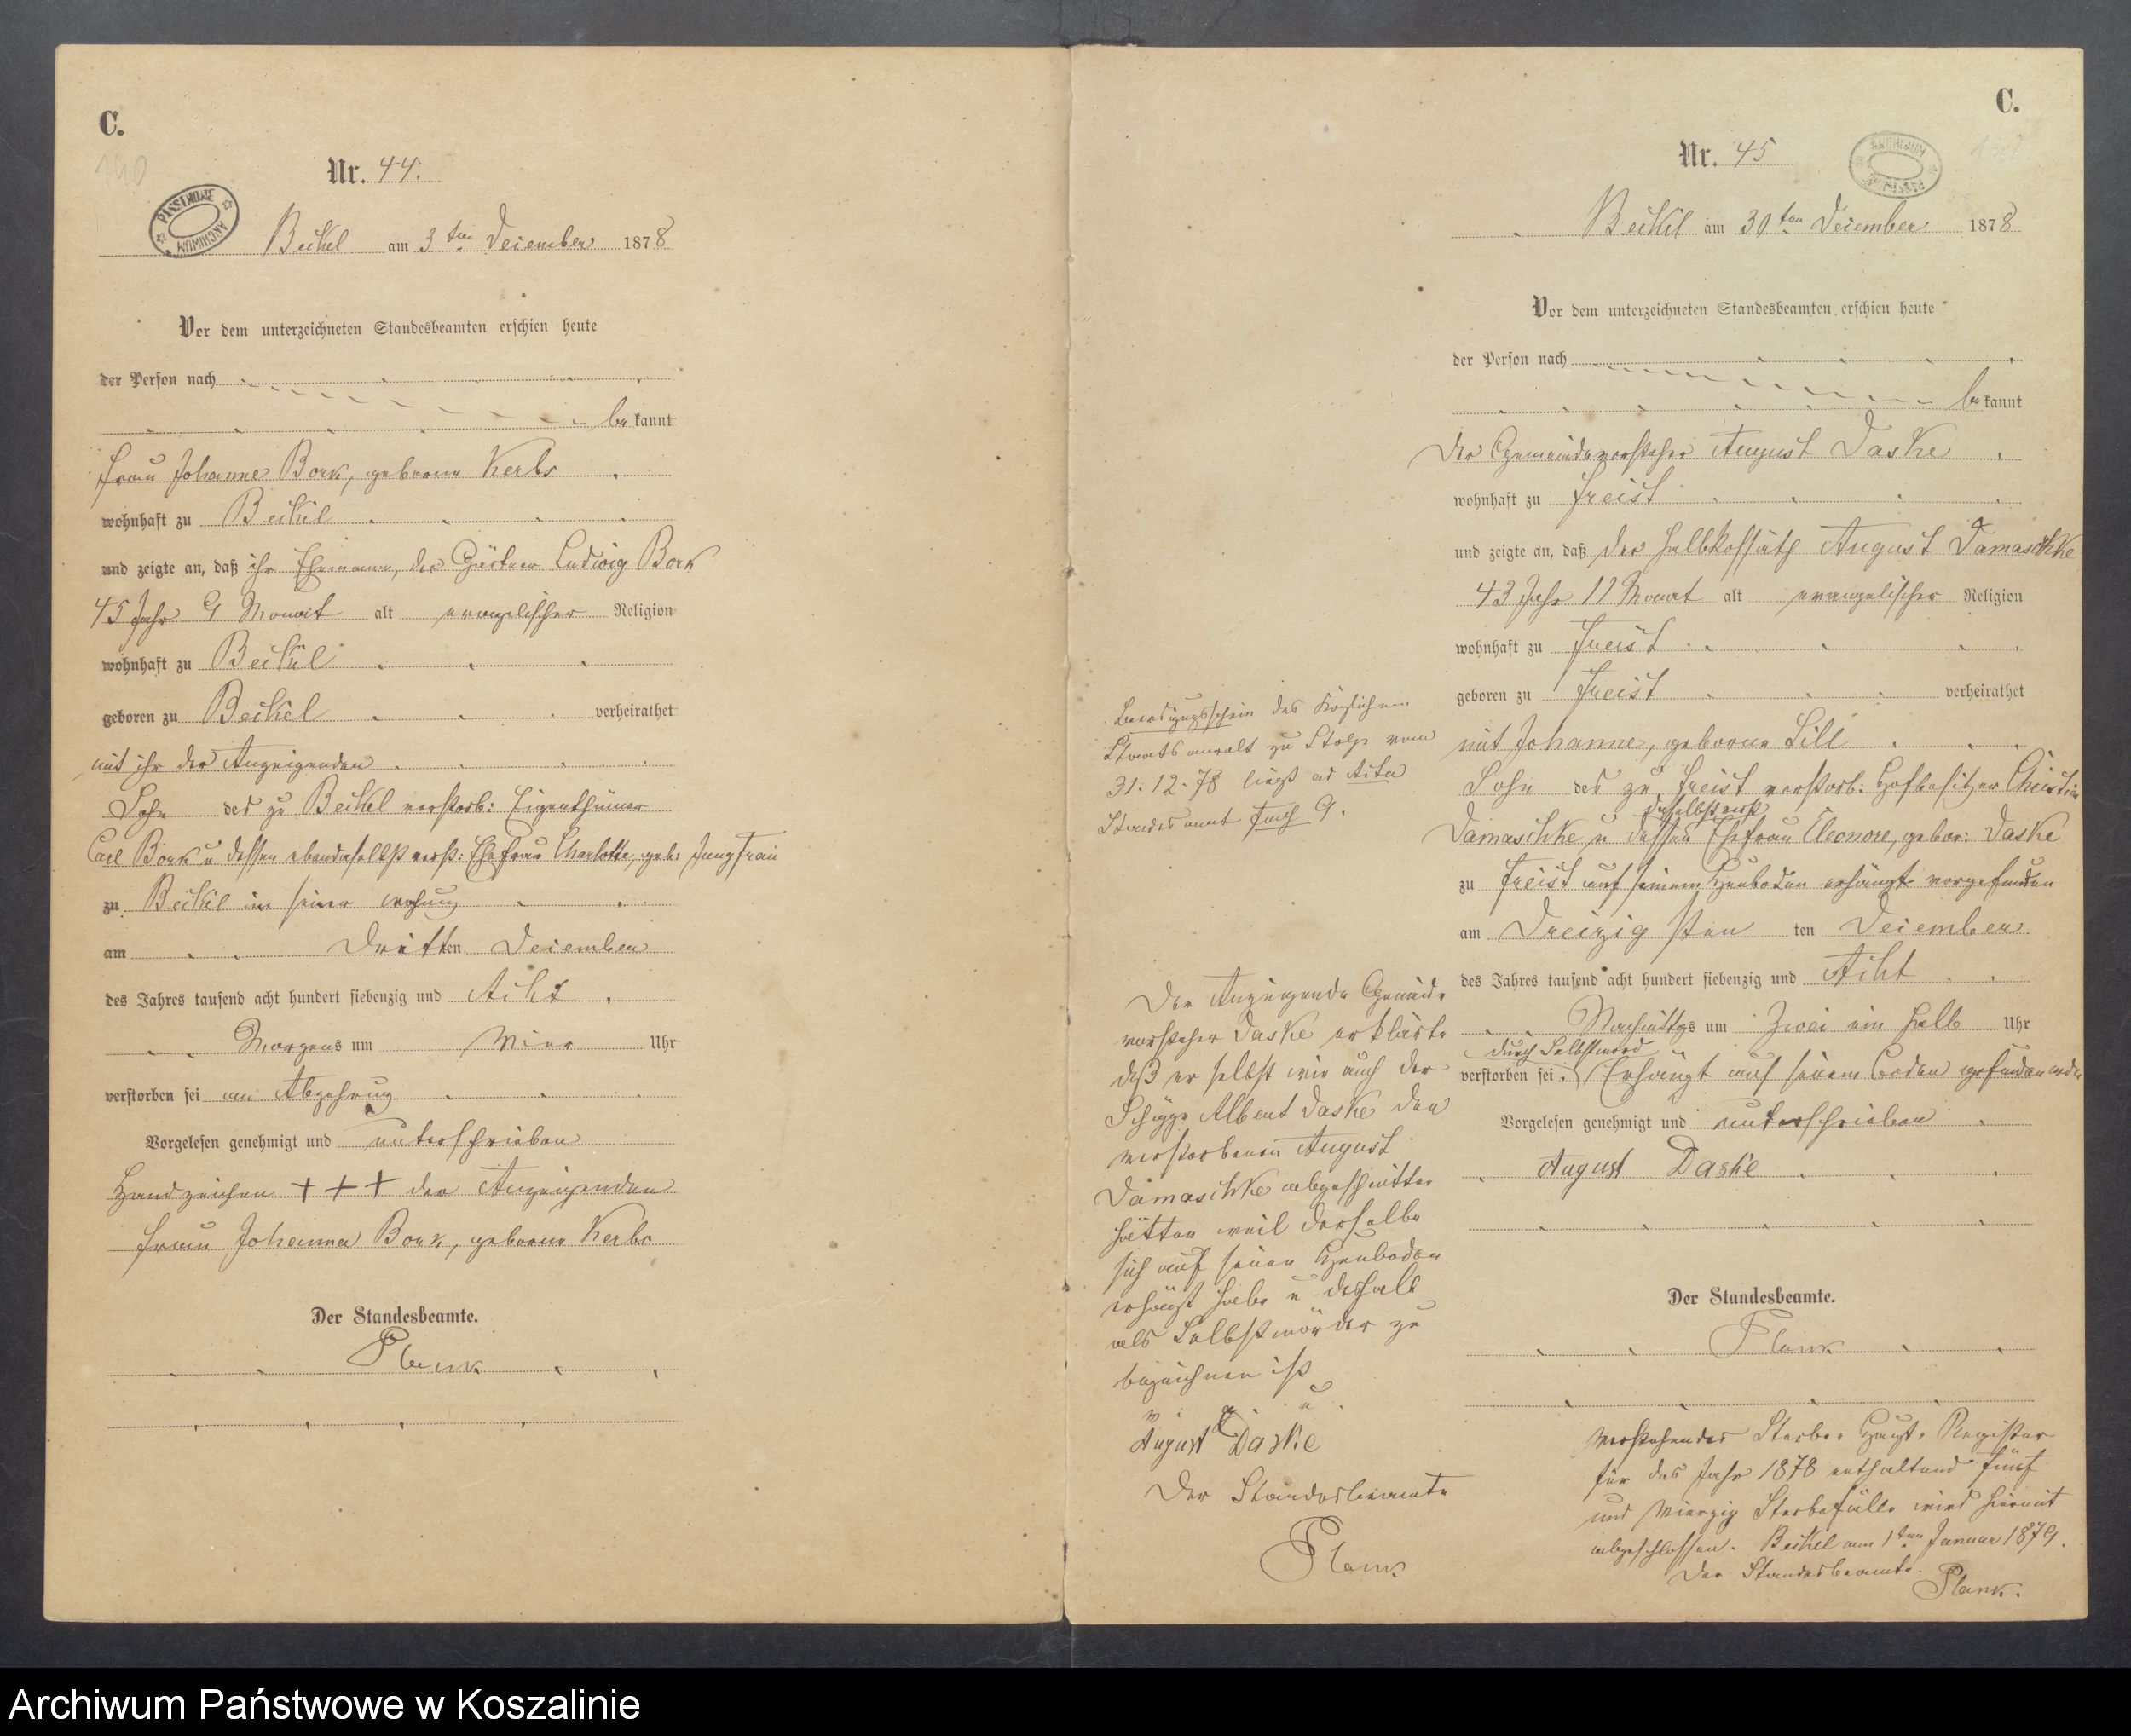 C.
140
Nr. 44.
ARCHIWUM PAŃSTWOWE
Beckel am 3ten December 1878
Vor dem unterzeichneten Standesbeamten erschien heute
der Person nach
bekannt
Frau Johanne Bork, geborne Kerbs
wohnhaft zu Beckel
und zeigte an, daß ihr Ehemann, der Gärtner Ludwig Bork
45 Jahr 9 Monat alt evangelischer Religion
wohnhaft zu Beckel
geboren zu Beckel verheirathet
mit ihr der Anzeigenden
Sohn des zu Beckel verstorb: Eigenthümer
Carl Bork u dessen ebendaselbst verst: Ehefrau Charlotte, geb: Jungfrau
zu Beckel in seiner Wohung
am Dritten December
des Jahres tausend acht hundert siebenzig und Acht
Morgens um Vier Uhr
verstorben sei an Abzehrung
Vorgelesen genehmigt und unterschrieben
Handzeichen + + + der Anzeigenden
Frau Johanna Bork, geborne Kerbs
Der Standesbeamte.
Plank
C.
Nr. 45
ARCHIWUM PAŃSTWOWE
Beckel am 30ten December 1878
Vor dem unterzeichneten Standesbeamten erschien heute
der Person nach
bekannt
Der Gemeindevorsteher August Daske
wohnhaft zu Freist
und zeigte an, daß der Halbkossäth August Damaschke
43 Jahr 11 Monat alt evangelischer Religion
wohnhaft zu Freist
geboren zu Freist verheirathet
mit Johanne, geborne Sill
Sohn des zu Freist verstorb: Hofbesitzer Christian
daselbst verst:
Damaschke u dessen Ehefrau Eleonore, gebor: Daske
zu Freist auf seinem Heuboden erhängt vorgefunden
am Dreizigsten ten December
des Jahres tausend acht hundert siebenzig und Acht
Nachmittgs um Zwei ein halb Uhr
durch Selbstmord
verstorben sei. Erhängt auf seinem Boden gefunden
Vorgelesen genehmigt und unterschrieben
August Daske
Der Standesbeamte.
Plank
Beerdigungsschein des Königlichen
Staatsanwalt zu Stolp vom
31.12.78 liegt ad Acta
Standesamt 9.
Der Anzeigende Gemeinde
vorsteher Daske erklärte
daß er selbst wie auch der
Schöppe Albert Daske den
verstorbenen August
Damaschke abgeschnitten
hätten weil derselbe
sich auf seinen Heuboden
erhängt habe u deshalb
als Selbstmörder zu
bezeichnen ist
August Daske
Der Standesbeamte
Plank
Vorstehender Sterbe-Haupt-Register
für das Jahr 1878 enthaltend fünf
und vierzig Sterbefälle wird hiermit
abgeschlossen. Beckel am 1ten Januar 1879.
Der Standesbeamte.
Plank.
Archiwum Państwowe w Koszalinie